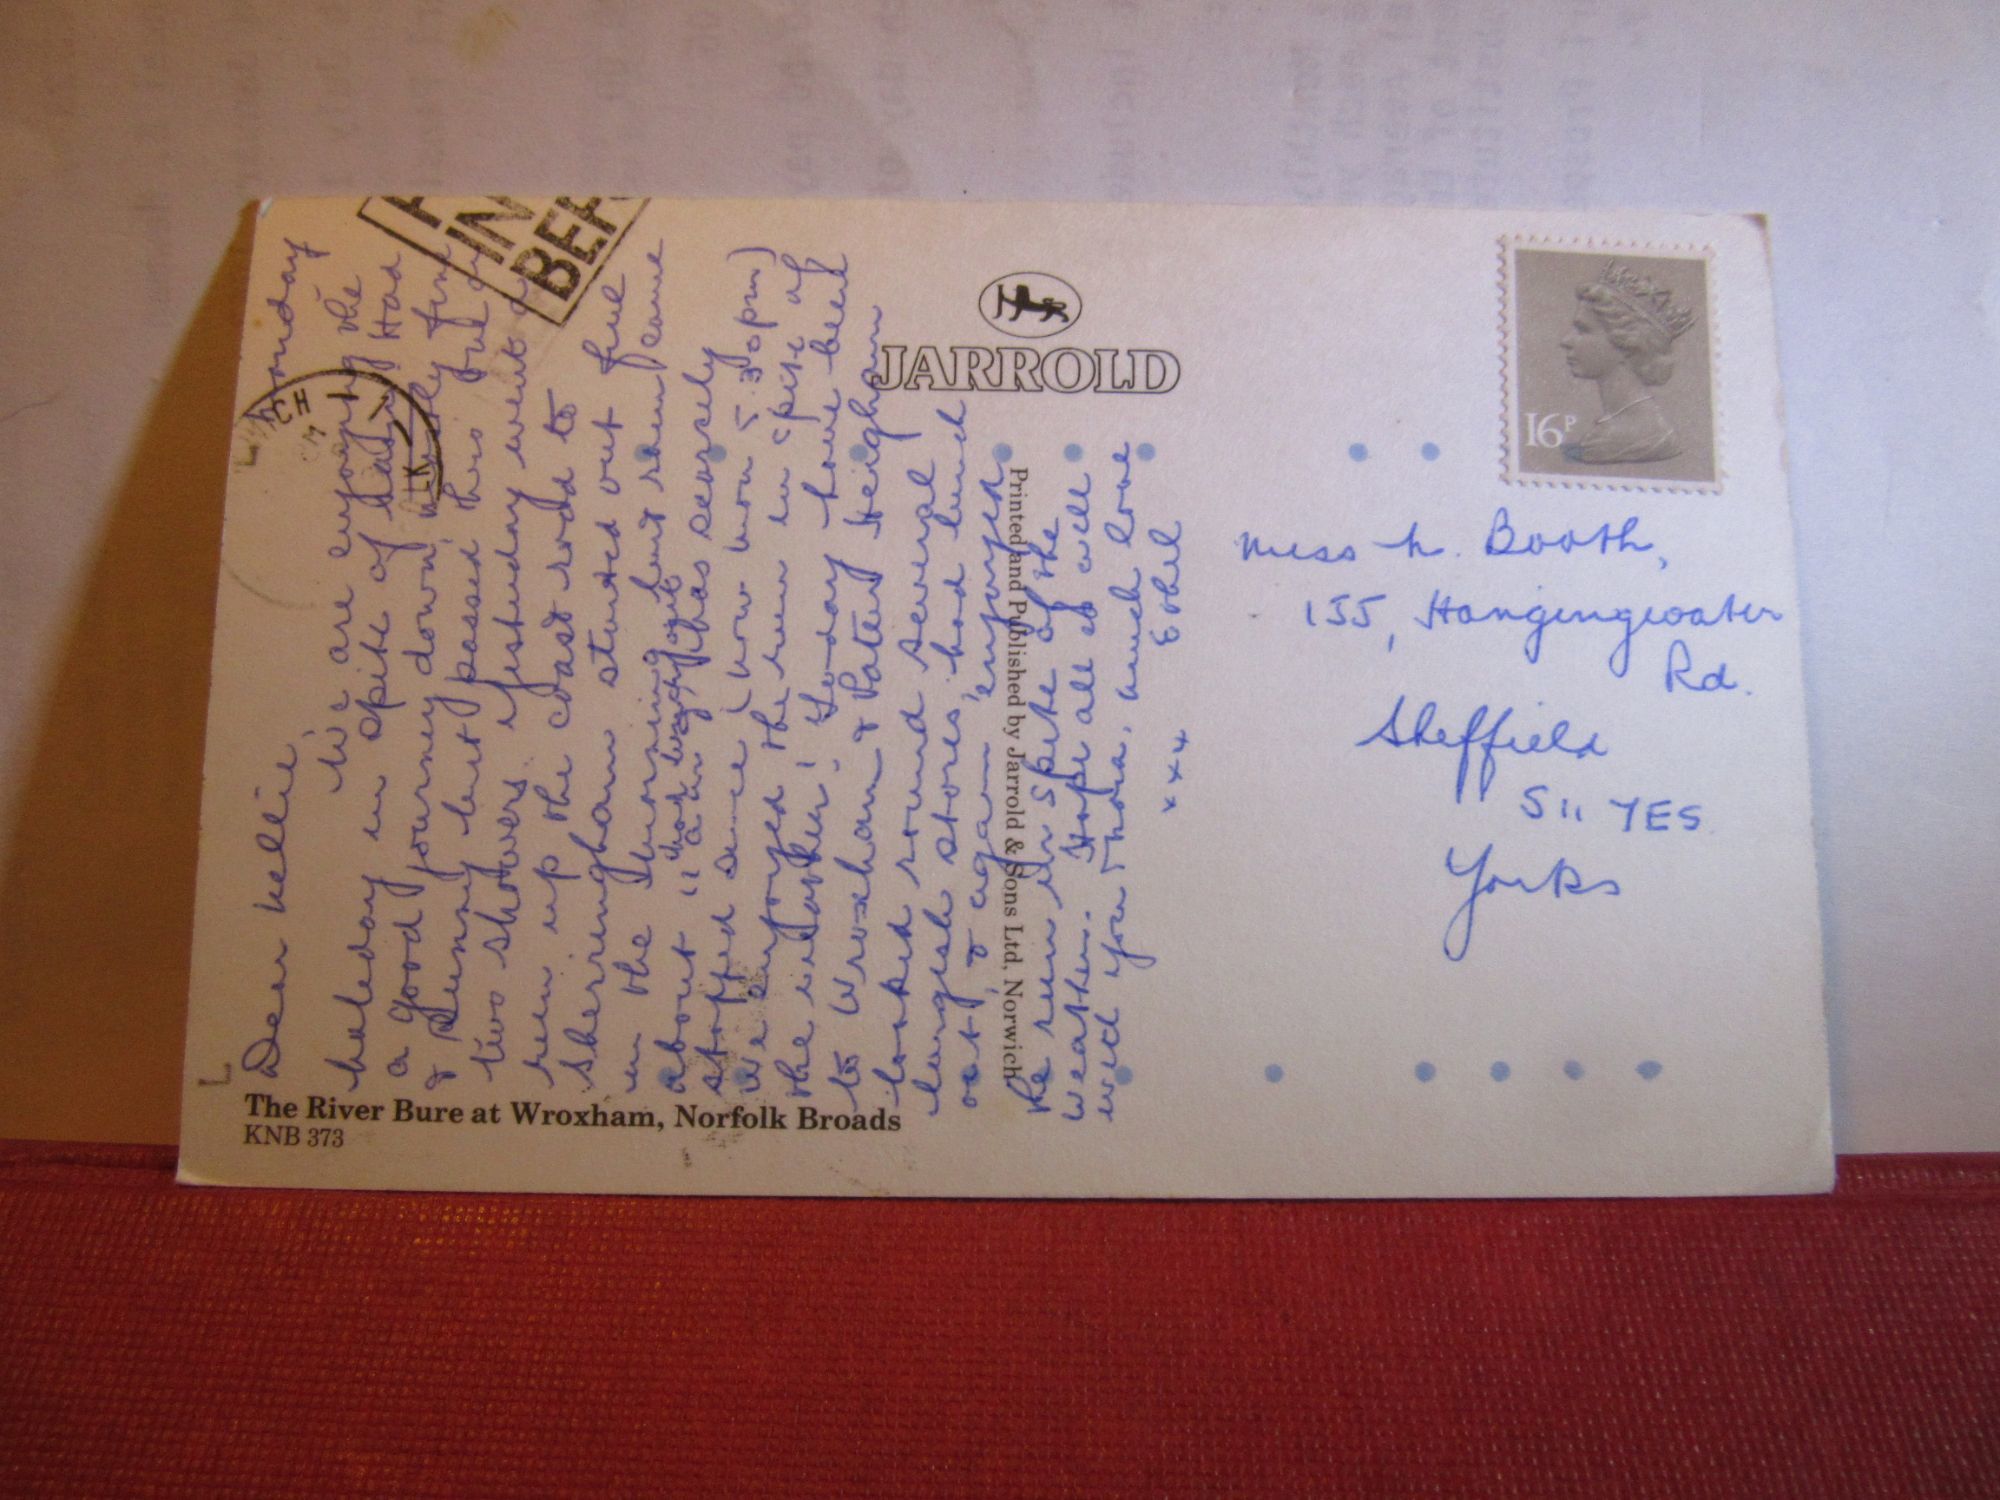 Monday
Dear Nellie,
We are enjoying the
holiday in spite of Had
a good journey down, mostly fine
& sunny but passed thro one or
two showers. yesterday went a
run up the coast road to
Sherringham started out fine
in the morning but rain came
about 11 a.m. & has scarcely
stopped since (now mon 5.30pm)
We enjoyed the run in spite of
the weather! To-day have been
to Wroxham & Potter Heigham
looked round several
largish stores, had lunch
out, & again enjoyed
the run in spite of the
weather. Hope all is well
with you & Mona, much love
Ethel
xxx
IN
JARROLD
Printed and Published by Jarrold & Sons Ltd, Norwich
The River Bure at Wroxham, Norfolk Broads
KNB 373
16P
Miss N. Booth,
155, Hangingwater
Rd.
Sheffield
S11 YES
Yorks